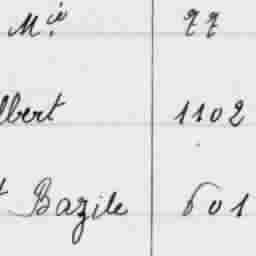 M.ie 77
lbert 1102
t Bazile 601